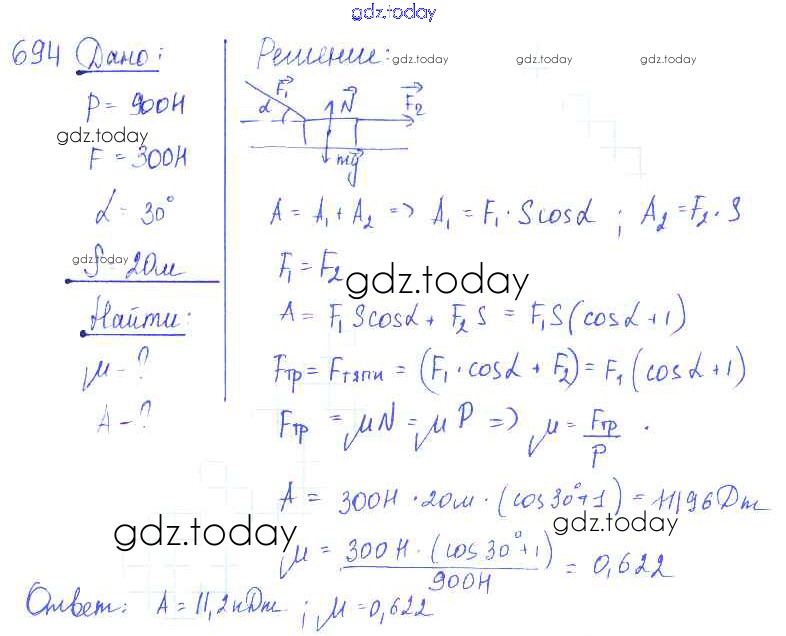 gdz.today
694 Дано: Решение: gdz.today gdz.today gdz.today
P = 900Н
gdz.today
F = 300Н
α = 30°
gdz.today
S = 20м
Найти:
μ - ?
A - ?
F₁ α N F₂
mg
A = A₁ + A₂ => A₁ = F₁ · S cosα ; A₂ = F₂ · S
F₁ = F₂
gdz.today
A = F₁ S cosα + F₂ S = F₁S (cosα + 1)
Fтр = Fтяги = (F₁ · cosα + F₂) = F₁ (cosα + 1)
Fтр = μN = μP => μ = Fтр / P .
A = 300Н · 20м · (cos30° + 1) = 11196 Дж
gdz.today gdz.today
μ = 300Н · (cos30° + 1) / 900Н = 0,622
Ответ: A = 11,2 кДж ; μ = 0,622